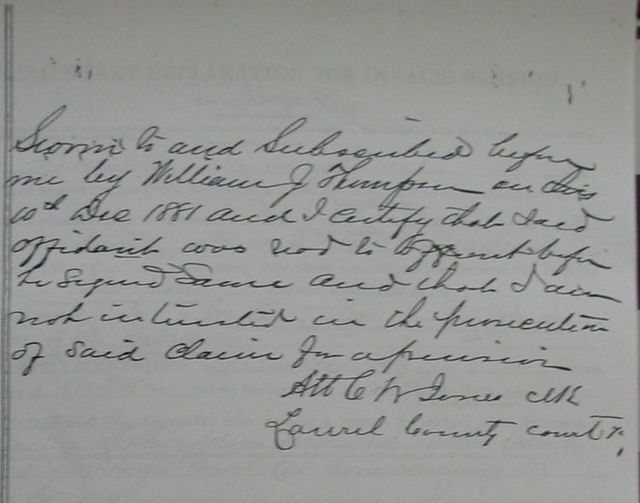 Sworn to and Subscribed before
me by William J Thompson on this
10th Dec 1881 and I certify that Said
affidavit was read to before
he Signed Same and that I am
not intersted in the prosecution
of Said Claim for a pension
Att C W Jones clk
Laurel County court